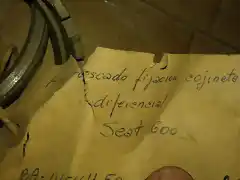 roscado fijacion cojinete
diferencial
Seat 600